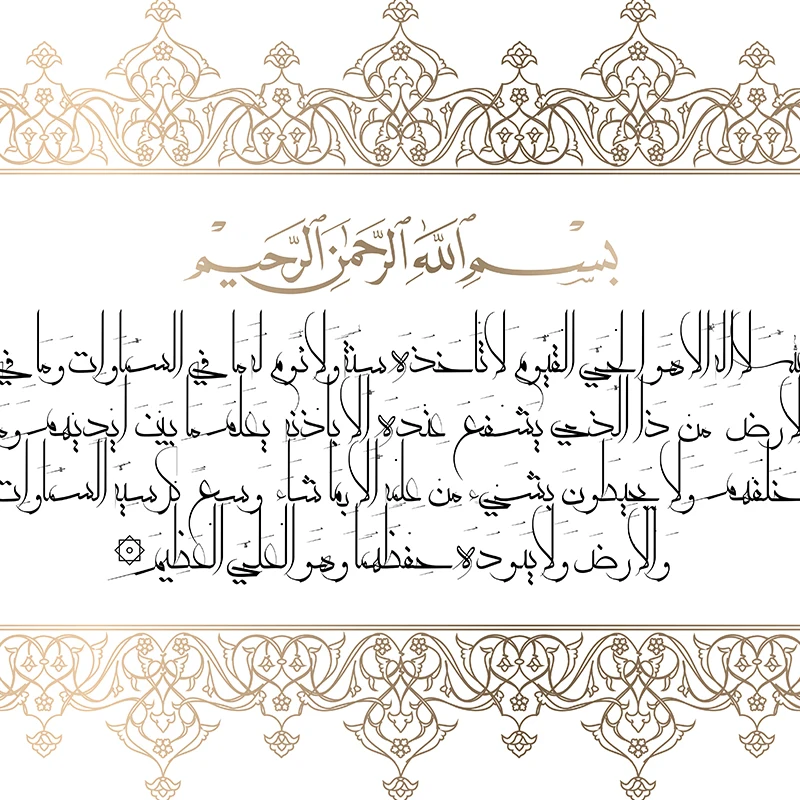 بِسْمِ ٱللَّهِ ٱلرَّحْمَٰنِ ٱلرَّحِيمِ
الله لا اله الا هو الحي القيوم لا تاخذه سنة ولا نوم له ما في السماوات وما في
الارض من ذا الذي يشفع عنده الا باذنه يعلم ما بين ايديهم وما
خلفهم ولا يحيطون بشيء من علمه الا بما شاء وسع كرسيه السماوات
والارض ولا يوده حفظهما وهو العلي العظيم ۞